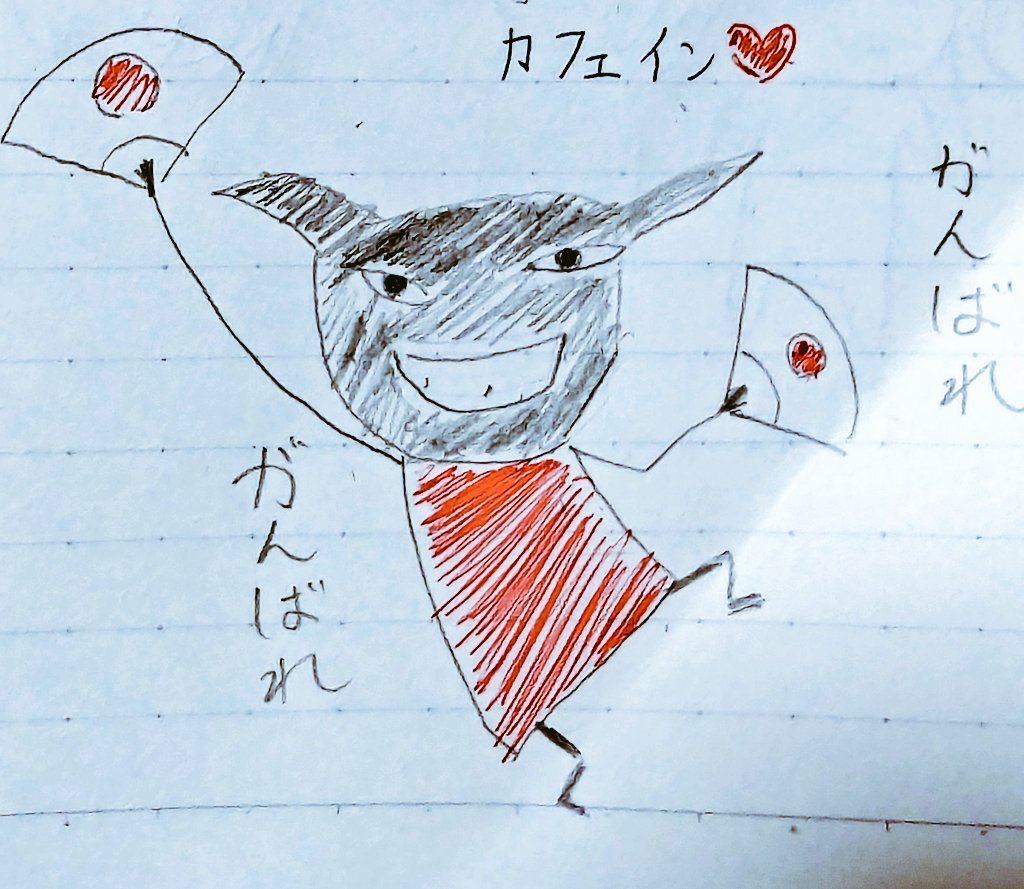 カフェイン♥
がんばれ
がんばれ